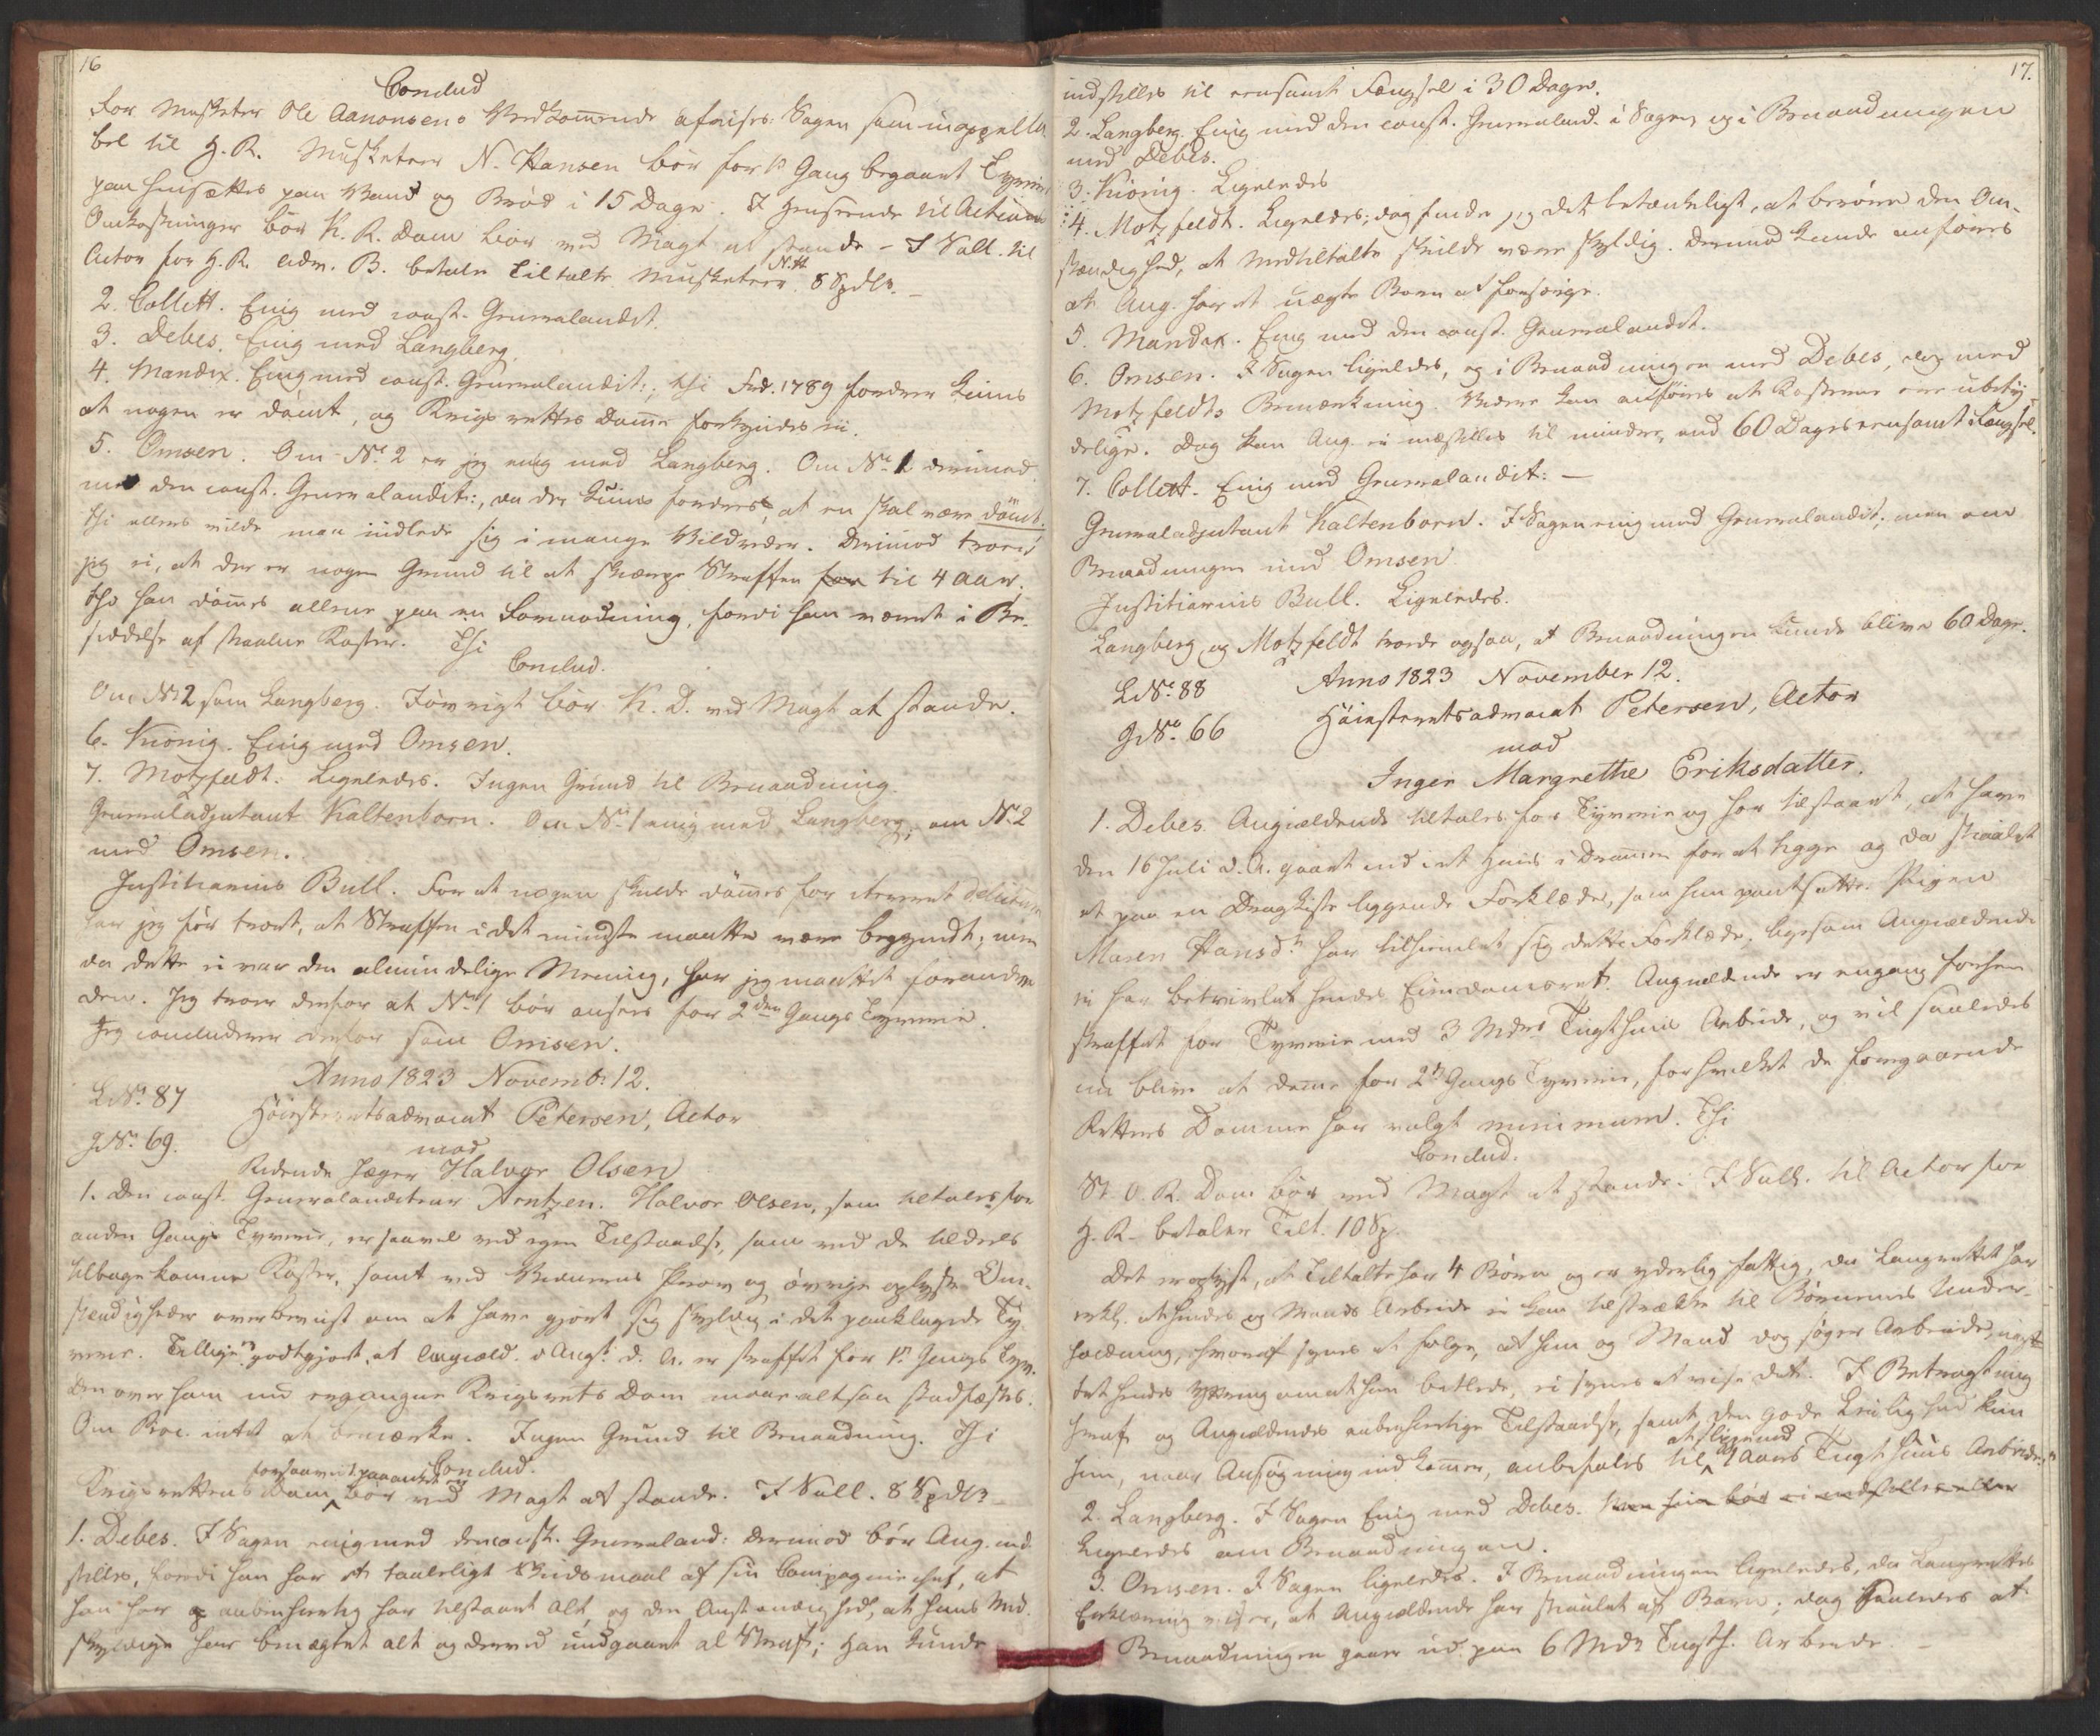 16
Conclud
For Musketer Ole Aanonsens Vedkom̄ende afvises Sagen som inappella
bel til H. R. Musketeer N. Hansen bør for 1ste Gang begaaet Tyverie
paa hensættes paa Vand og Brød i 15 Dage. I Henseende til Actions
Omkostninger bør K. R. Dom bør ved Magt at stande – I Sall. til
Actor for H. R. Adv. B. betale Tiltalte Musketeer N. H 8 Spdlr. –
2. Collett. Enig med const. Generalaudit.
3. Debes. Enig med Langberg.
4. Mandix. Enig med const. Generalaudit:, thi Frd. 1789 fordrer kuns
at nogen er dømt, og Krigsrettes Dom̄e forkyndes ei.
5. Omsen. Om No. 2 er jeg enig med Langberg. Om No. 1 derimod
med den const. Generalaudit:, da der kuns fordres, at en skal være dømt.
thi ellers vilde man indlede sig i mange Vildreder. Derimod troer
jeg ei, at der er nogen Grund til at skærpe Straffen for til 4 Aar,
thi han dømes allene paa en Formodning, fordi han været i Be-
siddelse af stiaalne Koster. Thi
Conclud.
Om No 2 som Langberg. Iøvrigt bør K. D. ved Magt at stande.
6. Kiønig. Enig med Omsen.
7. Motzfeldt. Ligeledes. Ingen Grund til Benaadning.
Generaladjutant Kaltenborn. Om No 1 enig med Langberg, om No 2
med Omsen.
Justitiarius Bull. For at nogen skulde dømes for itereret delictum
har jeg før troet, at Straffen i det mindste maatte være begyndt; men
da dette ei var den almindelige Mening, har jeg maattet forandre
den. Jeg troer derfor at No 1 bør ansees for 2den Gangs Tyverie.
Jeg concluderer derfor som Omsen.
Anno 1823 Novemb: 12.
L No. 87
Høiesteretsadvocat Petersen, Actor
G No. 69.
mod
Ridende Jæger Halvor Olsen
1. Den const. Generalauditeur Arntzen. Halvor Olsen, som tiltales for
anden Gangs Tyverie, er saavel ved egen Tilstaaelse, som ved de tildeels
tilbagekomne Koster, samt ved Vidnernes Prov og øvrige oplyste Om-
stændigheder overbeviist om at have gjort sig skyldig i det paaklagede Ty-
verie. Tillige er godtgjort, at Angiæld. i Augt. d. A. er straffet for 1ste Gangs Tyv.
Den over ham nu ergangne Krigsrets Dom maae altsaa stadfæstes.
Om Proc. intet at bemærke. Ingen Grund til Benaadning. Thi
Conclud.
Krigsrettens Dom forsaavidt paaanket er bør ved Magt at stande. I Sall. 8 Spdlr
1. Debes. I Sagen enig med den const. Generalaud: Derimod bør Aug. ind-
stilles, fordi han har et taaleligt Skudsmaal af sin Compagniechef, at
han har aabenhiertig har tilstaaet alt, og den Omstændighed, at hans Med-
skyldige har benægtet alt og derved undgaaet al Straf; Han kunde
17.
indstilles til eensomt Fængsel i 30 Dage.
2. Langberg. Enig med den const. Generalaud. i Sagen og i Benaadningen
med Debes.
3. Kiönig. Ligeledes
4. Motzfeldt. Ligeledes; dog finder jeg det betænkeligt, at berøre den Om-
stændighed, at Medtiltalte skulde være skyldig. Derimod kunde anføres
at Ang. har et uægte Barn at forsørge.
5. Mandix. Enig med den const. Generalaudit.
6. Omsen. I Sagen ligeledes, og i Benaadningen med Debes, dog med
Motzfeldts Bemærkning. Videre kan anføres at Kosterne ere ubety-
delige. Dog kan Ang. ei indstilles til mindre, end 60 Dages eensomt Fængsel.
7. Collett. Enig med Generalaudit: –
Generaladjutant Kaltenborn. I Sagen enig med Generalaudit; men om
Benaadningen med Omsen
Justitiarius Bull. Ligeledes.
Langberg og Motzfeldt troede ogsaa, at Benaadningen kunde blive 60 Dage.
Anno 1823 November 12.
L No. 88
Høiesteretsadvocat Petersen, Actor
G No. 66
mod
Inger Margrethe Eriksdatter.
1. Debes. Angiældende tiltales for Tyverie og har tilstaaet, at have
den 16 Juli d. A. gaaet ind i et Huus i Dram̄en for at tigge og da stiaalet
et paa en Dragkiste liggende Forklæde, som hun pantsatte. Pigen
Maren Hansdr. har tilhiemlet sig dette Forklæde, ligesom Angiældende
ei har betvivlet hendes Eiendomsret. Angiældende er engang forhen
straffet for Tyverie med 3 Mdrs Tugthuus Arbeide, og vil saaledes
nu blive at døme for 2den Gangs Tyverie, for hvilket de foregaaende
Retters Domme har valgt minimum. Thi
Conclud.
St. O. R. Dom bør ved Magt at stande. I Sall. til Actor for
H. R. betaler Tilt. 10 Sp.
Det er oplyst, at Tiltalte har 4 Børn og er yderlig fattig, da Laugrettet har
erkl. at hendes og Mands Arbeide ei kan tilstrække til Børnenes Under-
holdning, hvoraf synes at følge, at hun og Mand dog søger Arbeide, uagt
tet hendes Yttring om at hun betlede, ei synes at vise det. I Betragtning
heraf og Angiældendes aabenhiertige Tilstaaelse, samt den gode Leilighed kan
hun, naar Ansøgning indkommer, anbefales til at slippe med 1 Aars Tugthuus Arbeide."
2. Langberg. I Sagen Enig med Debes.
Ligeledes om Benaadningen.
3. Omsen. I Sagen ligeledes. I Benaadningen ligeledes, da Laugrettes
Erklæring viser, at Angiældende har stiaalet af Barn; dog saaledes at
Benaadningen gaaer ud paa 6 Mdr Tugth. Arbeide. –